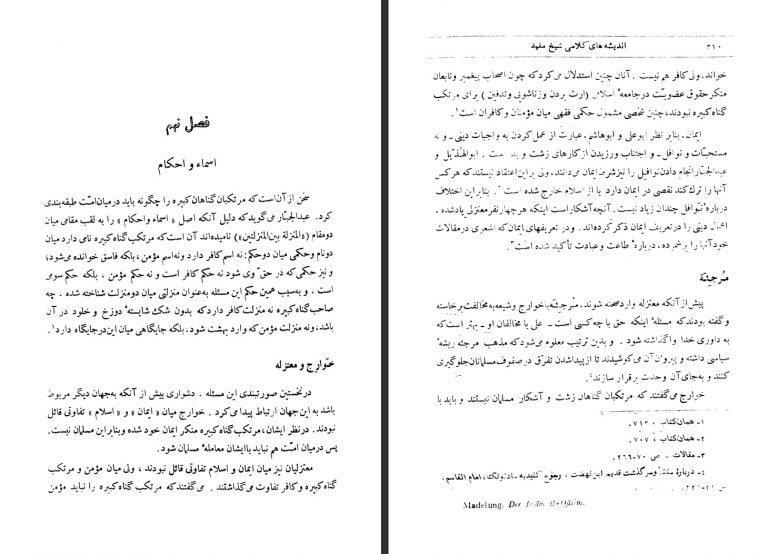 فصل نهم
اسماء و احکام
سخن از آن است که مرتکبان گناهان کبیره را چگونه باید در میان امّت طبقه‌بندی
کرد. عبدالجبّار می‌گوید که دلیل آنکه اصل «اسماء و احکام» را به لقب مقامی میان
دو مقام («المنزلة بین المنزلتین») نامیده‌اند آن است که مرتکب گناه کبیره نامی دارد میان
دو نام و حکمی میان دو حکم: نه اسم کافر دارد و نه اسم مؤمن، بلکه فاسق خوانده می‌شود؛
و نیز حکمی که در حقّ وی شود نه حکم کافر است و نه حکم مؤمن، بلکه حکم سومی
است. و به سبب همین حکم این مسئله به عنوان منزلتی میان دو منزلت شناخته شده. چه
صاحب گناه کبیره نه منزلت کافر دارد که بدون شک شایستهٔ دوزخ و خلود در آن
باشد، و نه منزلت مؤمن که وارد بهشت شود، بلکه جایگاهی میان این در جایگاه دارد۱.
خوارج و معتزله
در نخستین صورتبندی این مسئله، دشواری بیش از آنکه به جهان دیگر مربوط
باشد به این جهان ارتباط پیدا می‌کرد. خوارج میان «ایمان» و «اسلام» تفاوتی قائل
نبودند. در نظر ایشان، مرتکب گناه کبیره منکر ایمان خود شده و بنابراین مسلمان نیست.
پس در میان امّت هم نباید با ایشان معاملهٔ مسلمان شود.
معتزلیان نیز میان ایمان و اسلام تفاوتی قائل نبودند، ولی میان مؤمن و مرتکب
گناه کبیره و کافر تفاوت می‌گذاشتند. می‌گفتند که مرتکب گناه کبیره را نباید مؤمن
۳۱۰ اندیشه‌های کلامی شیخ مفید
خواند. ولی کافر هم نیست. آنان چنین استدلال می‌کردند که چون اصحاب پیغمبر و تابعان
منکر حقوق عضویّت در جامعهٔ اسلامی (ارث بردن و زناشوئی و تدفین) برای مرتکب
گناه کبیره نبودند، چنین شخصی مشمول حکمی فقهی میان مؤمنان و کافران است۱.
ایمان، بنابر نظر ابوعلی و ابوهاشم، عبارت از عمل کردن به واجبات دینی - و نه
مستحبّات و نوافل - و اجتناب ورزیدن از کارهای زشت و بد است. ابوالهُذَیل و
عبدالجبّار انجام دادن نوافل را نیز شرط ایمان می‌دانند. ولی بر این اعتقاد نیستند که هرکس
آنها را ترک کند نقصی در ایمان دارد یا از اسلام خارج شده است۲. بنابراین اختلاف
دربارهٔ نوافل چندان زیاد نیست. آنچه آشکار است اینکه هر چهار نفر معتزلی یادشده،
اعمال دینی را در تعریف ایمان ذکر کرده‌اند. و در تعریفهای ایمان که اشعری در مقالات
خود آنها را برشمرده، دربارهٔ طاعت و عبادت تأکید شده است۳.
مُرجِئَه
پیش از آنکه معتزله وارد صحنه شوند، مُرجِئَه با خوارج و شیعه به مخالفت برخاسته
و گفته بودند که مسئلهٔ اینکه حق با چه کسی است - علی یا مخالفان او - بهتر است که
به داوری خدا واگذاشته شود. و بدین ترتیب معلوم می‌شود که مذهب مرجئه ریشهٔ
سیاسی داشته و پیروان آن می‌کوشیدند تا از پیدا شدن تفرّق در صفوف مسلمانان جلوگیری
کنند و به جای آن وحدت برقرار سازند۴.
خوارج می‌گفتند که مرتکبان گناهان زشت و آشکار مسلمان نیستند و باید با
۱- همان کتاب، ۷۱۳.
۲- همان کتاب، ۷۰۷.
۳- مقالات، ص ۷۰-۲۶۶.
۴- دربارهٔ منشأ و سرگذشت قدیم این نهضت، رجوع کنید به مادلونگ، امام القاسم،
Madelung. Der Imām al-Qāsim.